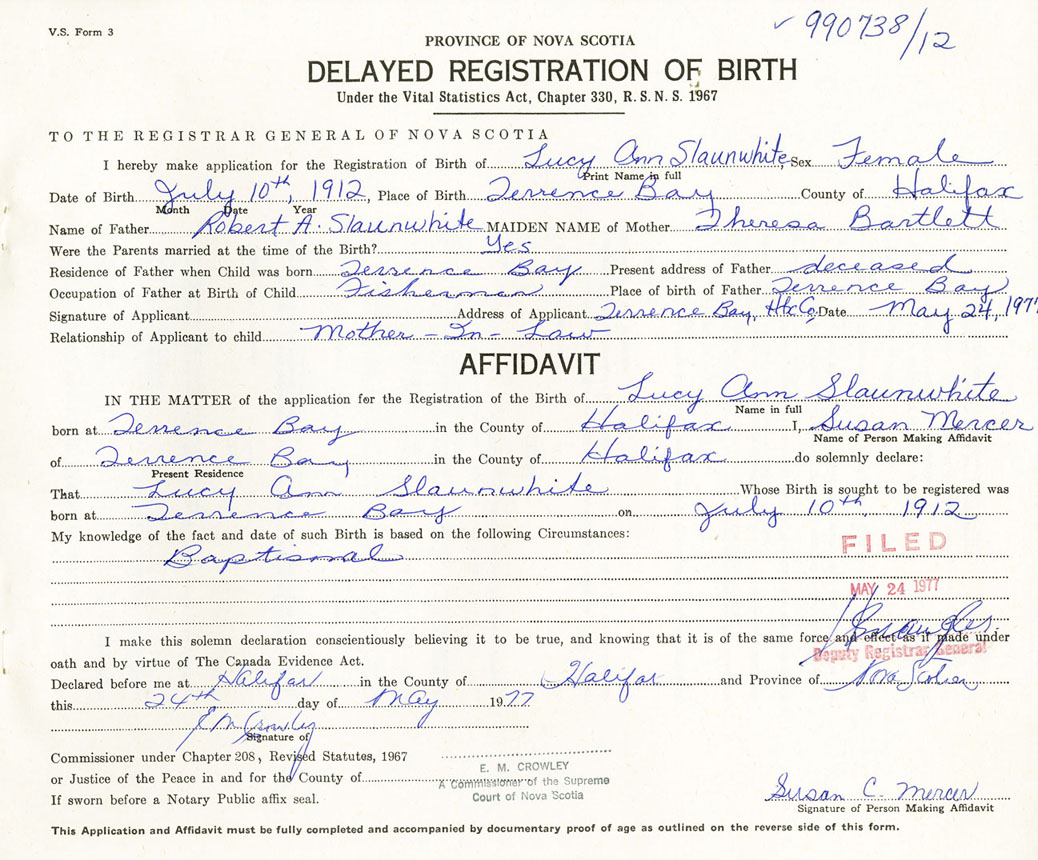 V.S. Form 3
✓ 990738/12
PROVINCE OF NOVA SCOTIA
DELAYED REGISTRATION OF BIRTH
Under the Vital Statistics Act, Chapter 330, R.S.N.S. 1967
TO THE REGISTRAR GENERAL OF NOVA SCOTIA
I hereby make application for the Registration of Birth of Lucy Ann Slaunwhite, Sex Female
Print Name in full
Date of Birth July 10th, 1912, Place of Birth Terrence Bay County of Halifax
Month Date Year
Name of Father Robert A. Slaunwhite MAIDEN NAME of Mother Theresa Bartlett
Were the Parents married at the time of the Birth? Yes
Residence of Father when Child was born Terrence Bay Present address of Father deceased
Occupation of Father at Birth of Child Fisherman Place of birth of Father Terrence Bay
Signature of Applicant Address of Applicant Terrence Bay, Hfx Co. Date May 24, 1977
Relationship of Applicant to child Mother-In-Law
AFFIDAVIT
IN THE MATTER of the application for the Registration of the Birth of Lucy Ann Slaunwhite
Name in full
born at Terrence Bay in the County of Halifax I, Susan Mercer
Name of Person Making Affidavit
of Terrence Bay in the County of Halifax do solemnly declare:
Present Residence
That Lucy Ann Slaunwhite Whose Birth is sought to be registered was
born at Terrence Bay on July 10th 1912
My knowledge of the fact and date of such Birth is based on the following Circumstances:
Baptismal
FILED
MAY 24 1977
I make this solemn declaration conscientiously believing it to be true, and knowing that it is of the same force and effect as if made under
Deputy Registrar General
oath and by virtue of The Canada Evidence Act.
Declared before me at Halifax in the County of Halifax and Province of Nova Scotia
this 24th day of May 1977
E M Crowley
Signature of
Commissioner under Chapter 208, Revised Statutes, 1967
or Justice of the Peace in and for the County of
If sworn before a Notary Public affix seal.
E. M. CROWLEY
A Commissioner of the Supreme
Court of Nova Scotia
Susan C. Mercer
Signature of Person Making Affidavit
This Application and Affidavit must be fully completed and accompanied by documentary proof of age as outlined on the reverse side of this form.